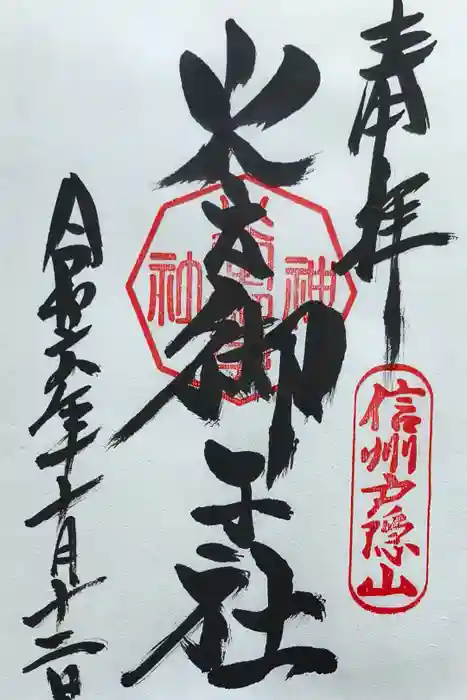 奉拝
信州戸隠山
火之御子社
令和六年十月十二日